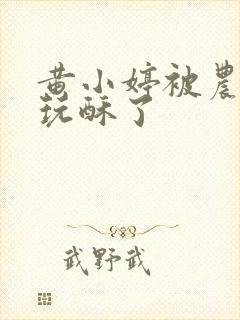 黄小婷被農
玩酥了
武野武